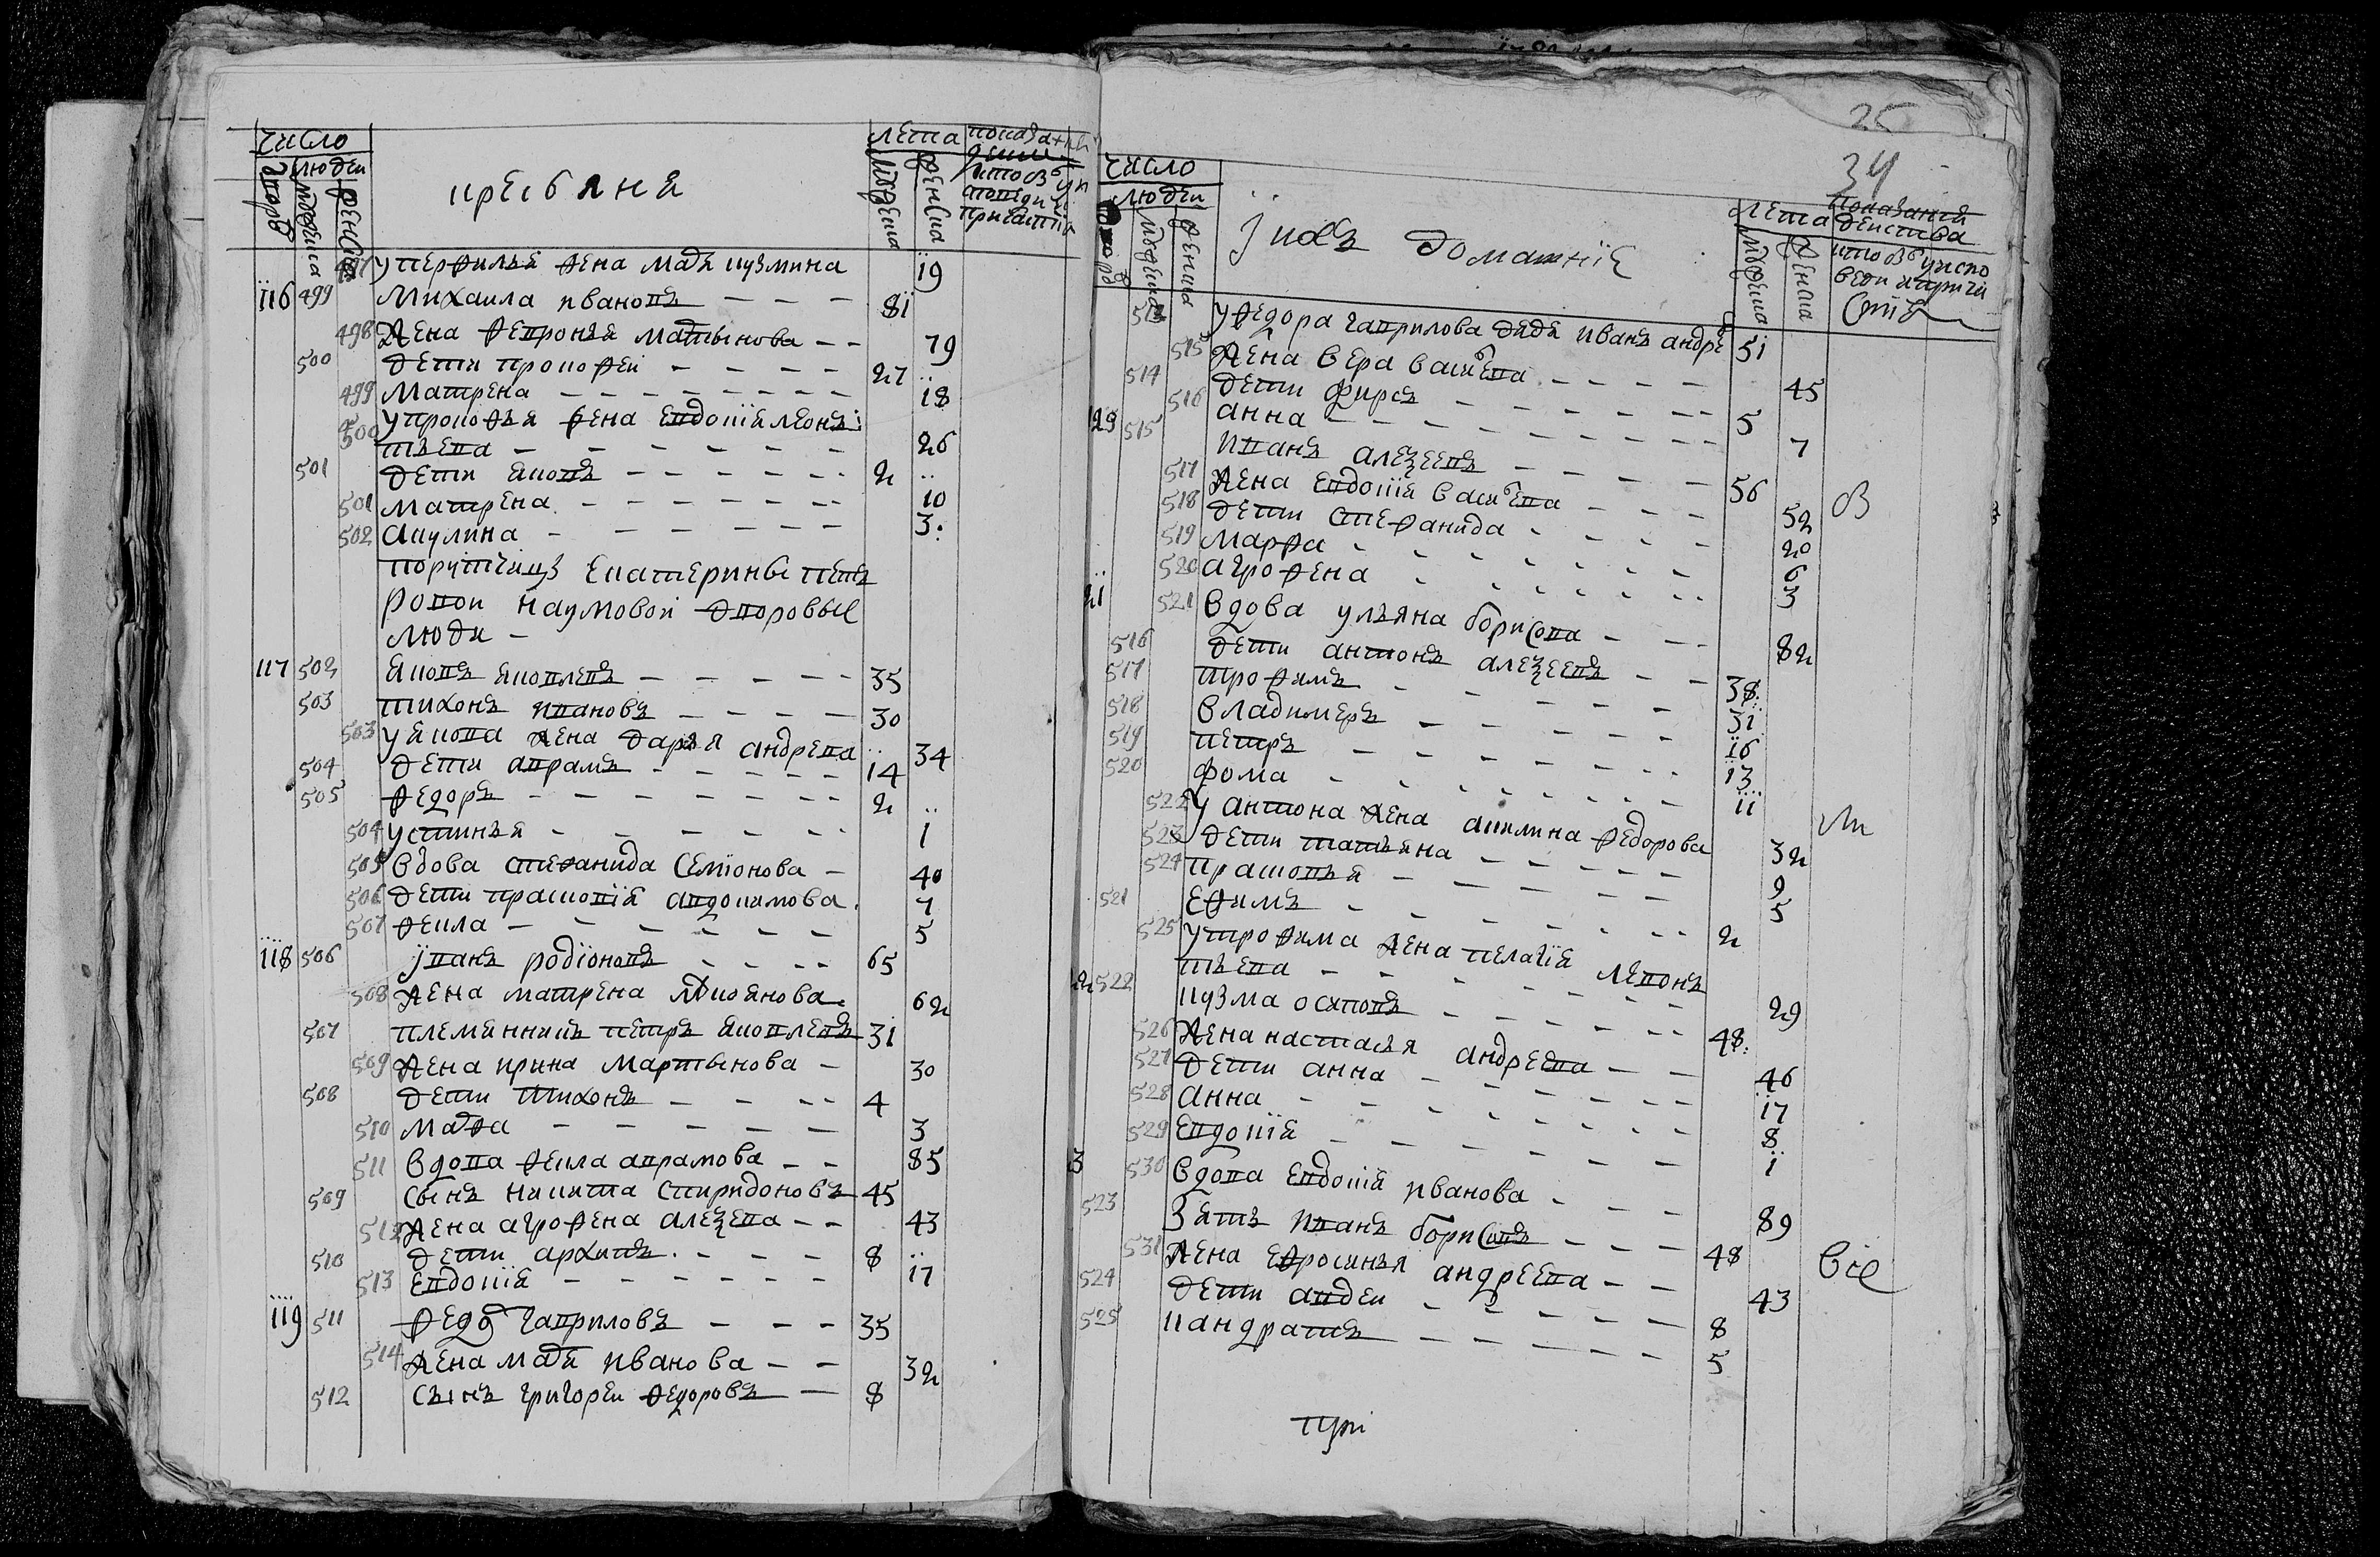 число
людеи
дворов
мужеска
женска
кресьяня
лета
мужеска
женска
показании
497 у перфилья жена мавра кузмина 19
116 499 Михаила ивановъ 81
498 Жена февронья мартынова 79
500 дети прокофеи 27
499 Матрена 18
500 у прокофья жена евдокия леонь
тьева 26
501 дети яковъ 2
501 матрена 10
502 акулина 3
порутчицы екатерины пет
ровои наумовои дворовые
люди
117 502 яковъ яковлевъ 35
503 тихонъ ивановъ 30
503 у якова жена дарья андреева 34
504 дети аврамъ 14
505 федоръ 2
504 устинья 1
505 вдова стефанида семионова 40
506 дети прасковия авдокимова 7
507 фекла 5
118 506 иванъ родионовъ 65
508 жена матрена 62
507 племянникъ петръ яковлевъ 31
509 жена ирина мартынова 30
508 дети тихонъ 4
510 марфа 3
511 вдова фекла аврамова 85
509 сынъ никита спиридоновъ 45
512 жена агрофена алеѯева 43
510 дети архипъ 8
513 евдокия 17
119 511 федоръ гавриловъ 35
514 жена мавра иванова 32
512 сынъ григореи федоровъ 8
25
34
число
людеи
мужеска
женска
и ихъ домашние
лета
мужеска
женска
показания
деиства
кто въ у испо
веди и прича
стия
513 у федора гаврилова дядя иванъ андре 51
515 жена вера васильева 45
514 дети фирсъ 5
516 анна 7
515 иванъ алеѯеевъ 56
517 жена евдокия васильева 52
518 дети стефанида 20
519 марфа 6
520 агрофена 3
521 вдова ульяна борисова 82
516 дети антонъ алеѯеевъ 38
517 трофимъ 31
518 владимеръ 16
519 петръ 13
520 фома 11
522 у антона жена акилина федорова 32
523 дети татьяна 9
524 прасковья 5
521 ефимъ 2
525 у трофима жена пелагия левонь
тьева 29
522 кузма осиповъ 48
526 жена настасья андреева 46
527 дети анна 17
528 анна 8
529 евдокия 1
530 вдова евдокия иванова 89
523 зять иванъ борисовъ 48
531 жена ефросинья андреева 43
524 дети авдеи 8
525 кандратъ 5
все